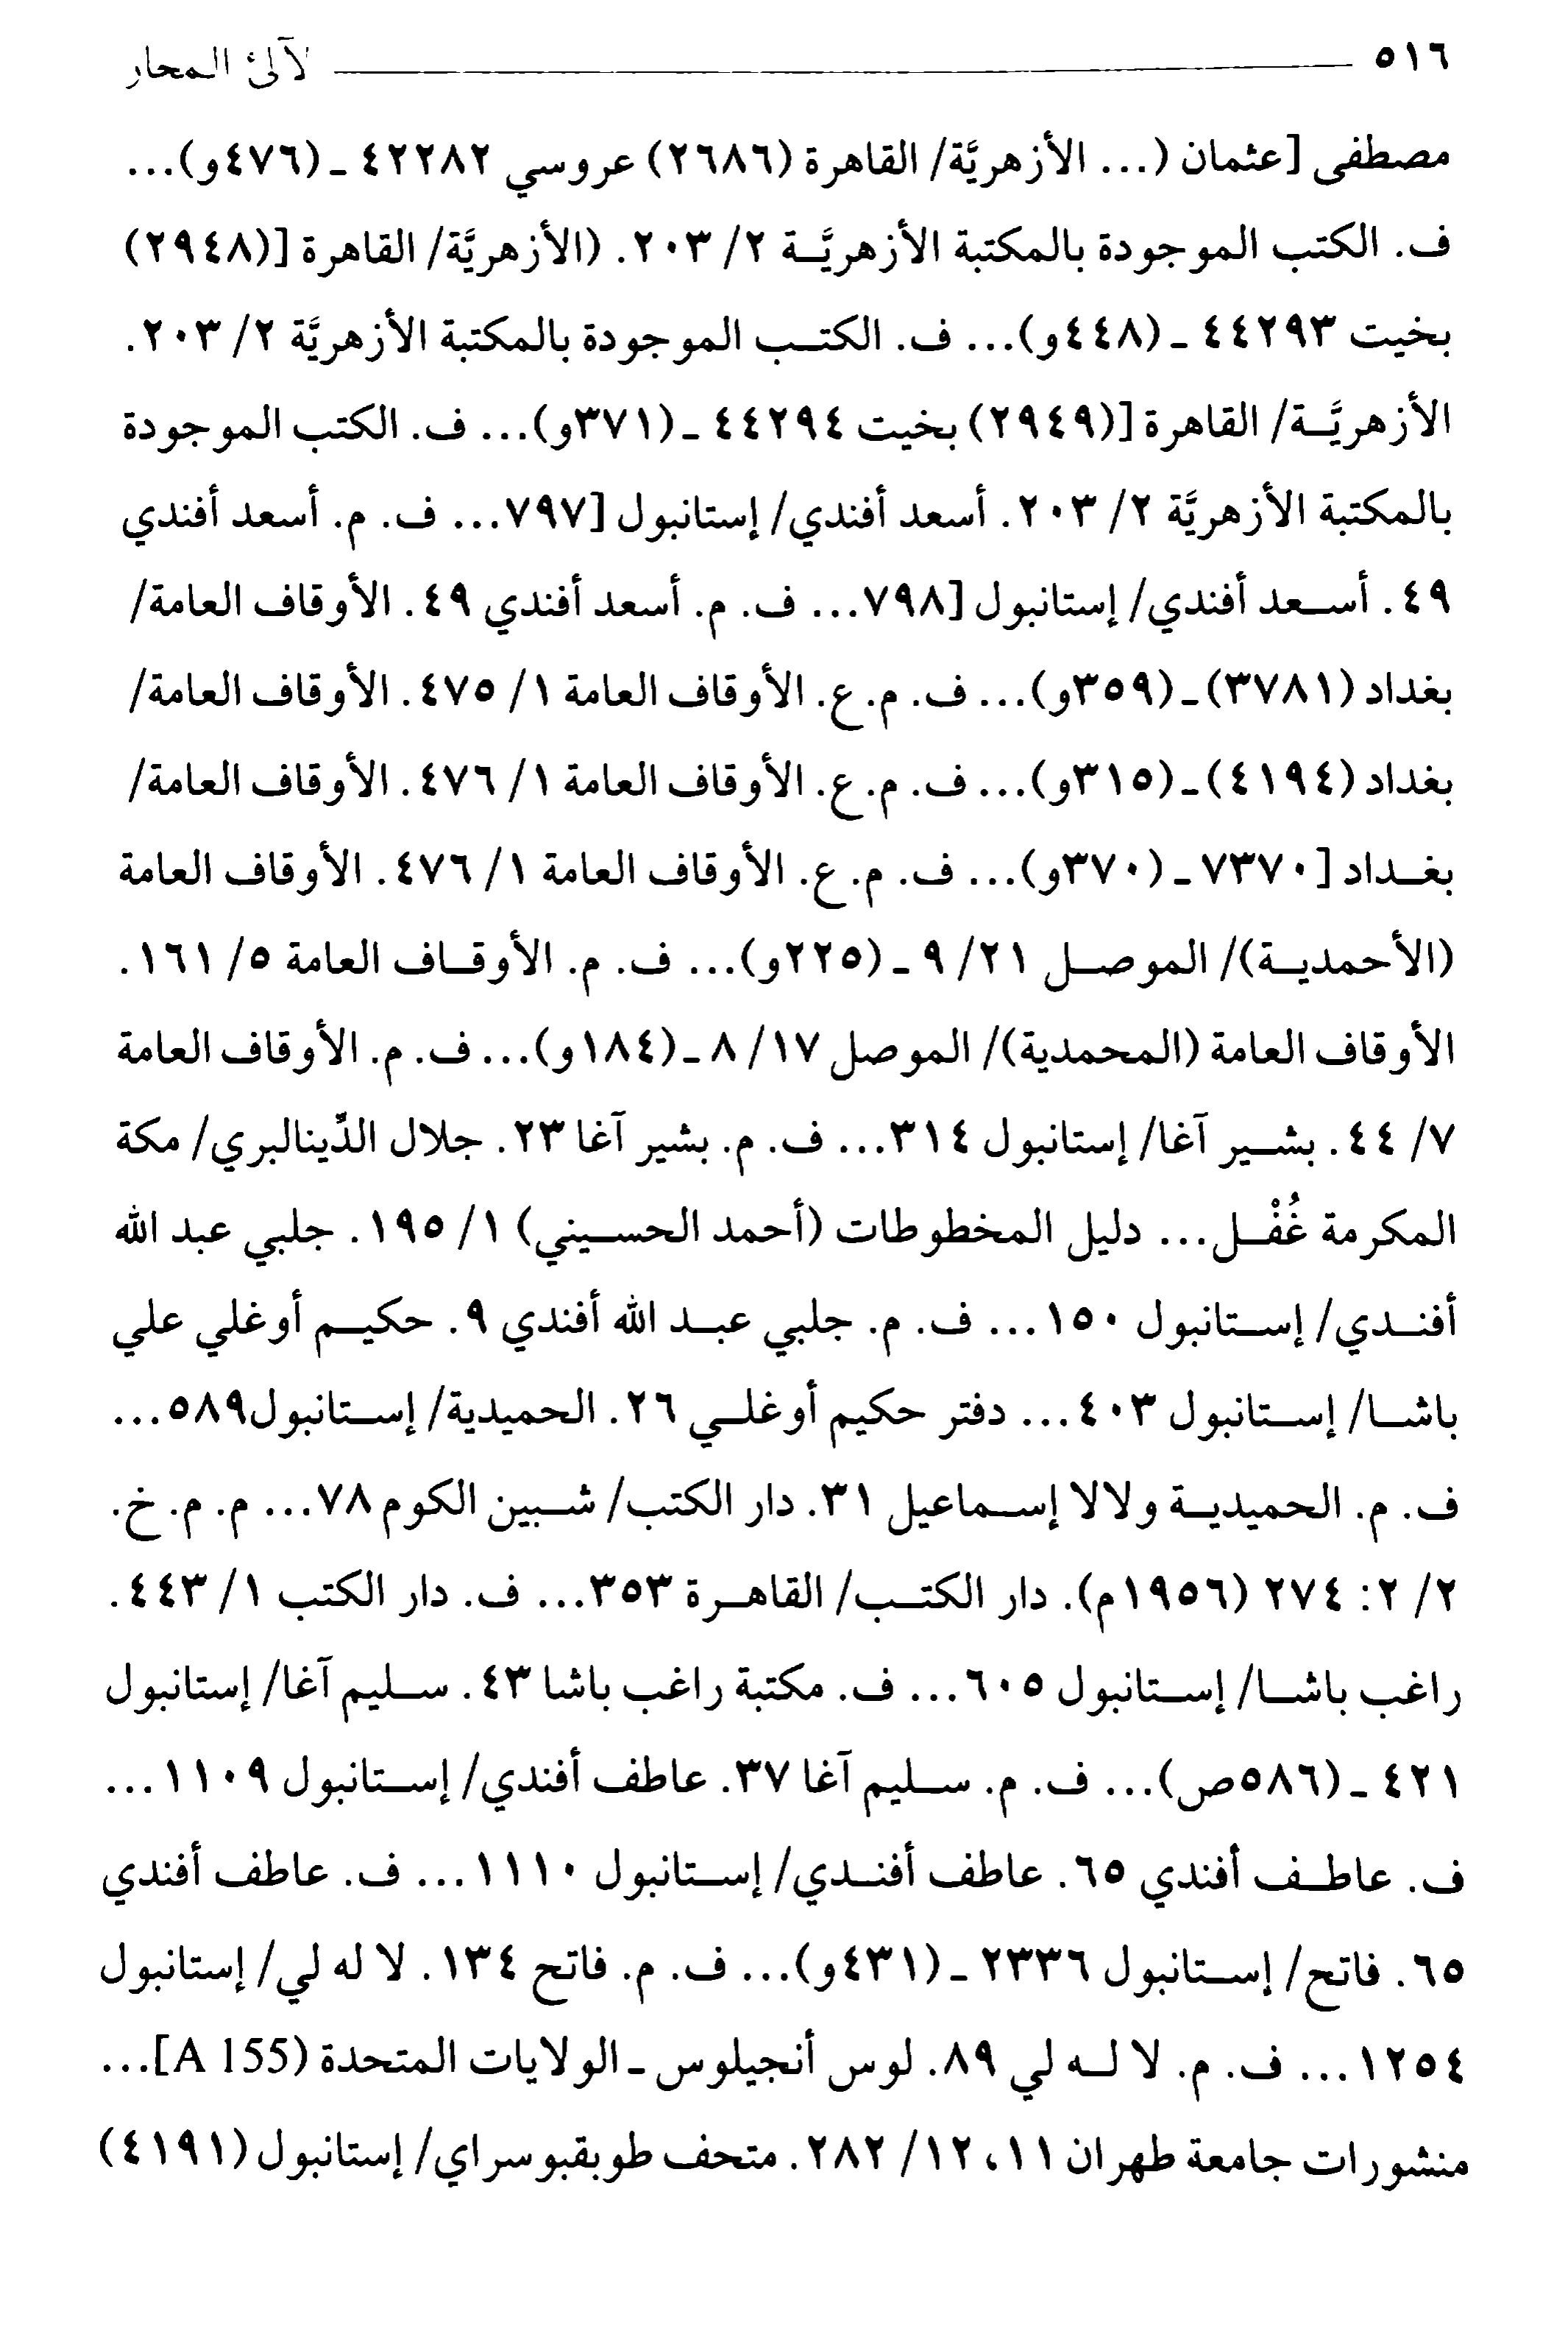 ٥١٦ لآلئ المحار
مصطفى [عثمان (... الأزهريَّة/ القاهرة (٢٦٨٦) عروسي ٤٢٢٨٢ ـ (٤٧٦و)...
ف. الكتب الموجودة بالمكتبة الأزهريَّـة ٢/ ٢٠٣. (الأزهريَّة/ القاهرة [(٢٩٤٨)
بخيت ٤٤٢٩٣ ـ (٤٤٨و)... ف. الكتـب الموجودة بالمكتبة الأزهريَّة ٢/ ٢٠٣.
الأزهريَّـة/ القاهرة [(٢٩٤٩) بخيت ٤٤٢٩٤ ـ (٣٧١و)... ف. الكتب الموجودة
بالمكتبة الأزهريَّة ٢/ ٢٠٣. أسعد أفندي/ إستانبول [٧٩٧... ف. م. أسعد أفندي
٤٩. أسـعد أفندي/ إستانبول [٧٩٨... ف. م. أسعد أفندي ٤٩. الأوقاف العامة/
بغداد (٣٧٨١) ـ (٣٥٩و)... ف. م. ع. الأوقاف العامة ١/ ٤٧٥. الأوقاف العامة/
بغداد (٤١٩٤) ـ (٣١٥و)... ف. م. ع. الأوقاف العامة ١/ ٤٧٦. الأوقاف العامة/
بغـداد [٧٣٧٠ ـ (٣٧٠و)... ف. م. ع. الأوقاف العامة ١/ ٤٧٦. الأوقاف العامة
(الأحمديـة)/ الموصـل ٢١/ ٩ ـ (٢٢٥و)... ف. م. الأوقـاف العامة ٥/ ١٦١.
الأوقاف العامة (المحمدية)/ الموصل ١٧/ ٨ ـ (١٨٤و)... ف. م. الأوقاف العامة
٧/ ٤٤. بشـير آغا/ إستانبول ٣١٤... ف. م. بشير آغا ٢٣. جلال الدِّينالبري/ مكة
المكرمة غُفْـل... دليل المخطوطات (أحمد الحسـيني) ١/ ١٩٥. جلبي عبد الله
أفنـدي/ إسـتانبول ١٥٠... ف. م. جلبي عبـد الله أفندي ٩. حكيـم أوغلي علي
باشـا/ إسـتانبول ٤٠٣... دفتر حكيم أوغلـي ٢٦. الحميدية/ إسـتانبول٥٨٩...
ف. م. الحميديـة ولالا إسـماعيل ٣١. دار الكتب/ شـبين الكوم ٧٨... م. م. خ.
٢/ ٢: ٢٧٤ (١٩٥٦م). دار الكتـب/ القاهـرة ٣٥٣... ف. دار الكتب ١/ ٤٤٣.
راغب باشـا/ إسـتانبول ٦٠٥... ف. مكتبة راغب باشا ٤٣. سـليم آغا/ إستانبول
٤٢١ ـ (٥٨٦ص)... ف. م. سـليم آغا ٣٧. عاطف أفندي/ إسـتانبول ١١٠٩...
ف. عاطـف أفندي ٦٥. عاطف أفنـدي/ إسـتانبول ١١١٠... ف. عاطف أفندي
٦٥. فاتح/ إسـتانبول ٢٣٣٦ ـ (٤٣١و)... ف. م. فاتح ١٣٤. لا له لي/ إستانبول
١٢٥٤... ف. م. لا لـه لي ٨٩. لوس أنجيلوس ـ الولايات المتحدة (A 155]...
منشورات جامعة طهران ١١، ١٢/ ٢٨٢. متحف طوبقبوسراي/ إستانبول (٤١٩١)